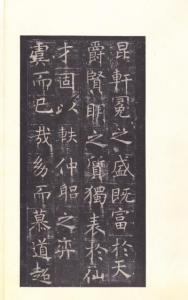 昆軒冕之盛既富於天
爵賢明之質獨表於仙
才固以軼仲之弈
虞而已哉幼而慕道超